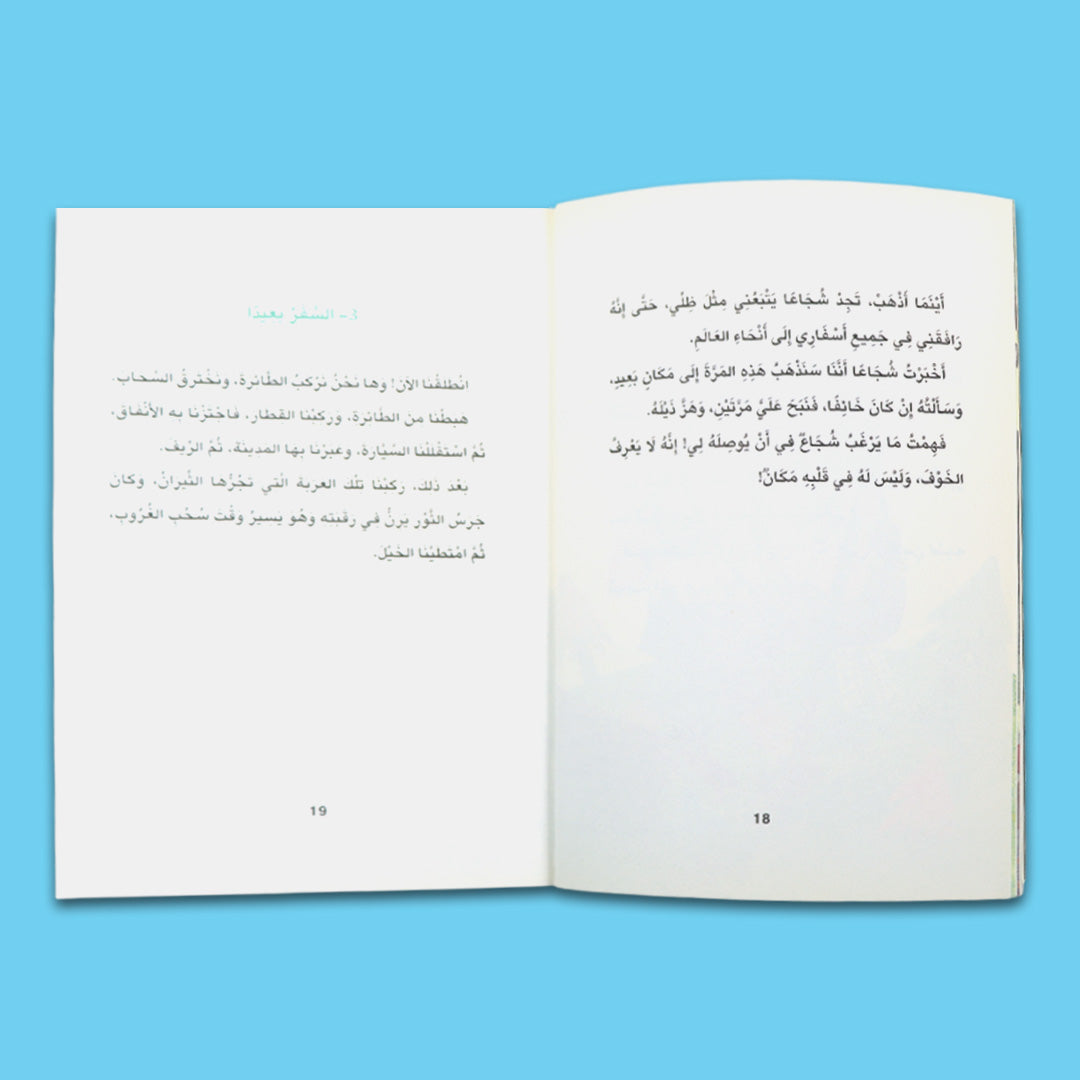 أَيْنَمَا أَذْهَبْ، تَجِدْ شُجَاعًا يَتْبَعُنِي مِثْلَ ظِلِّي، حَتَّى إِنَّهُ
رَافَقَنِي فِي جَمِيعِ أَسْفَارِي إِلَى أَنْحَاءِ العَالَمِ.
أَخْبَرْتُ شُجَاعًا أَنَّنَا سَنَذْهَبُ هَذِهِ المَرَّةَ إِلَى مَكَانٍ بَعِيدٍ،
وَسَأَلْتُهُ إِنْ كَانَ خَائِفًا، فَنَبَحَ عَلَيَّ مَرَّتَيْنِ، وَهَزَّ ذَيْلَهُ.
فَهِمْتُ مَا يَرْغَبُ شُجَاعٌ فِي أَنْ يُوصِلَهُ لِي! إِنَّهُ لَا يَعْرِفُ
الخَوْفَ، وَلَيْسَ لَهُ فِي قَلْبِهِ مَكَانٌ!
18
3- السَّفَرُ بَعِيدًا
انْطَلَقْنَا الآنَ! وها نَحْنُ نَرْكَبُ الطَّائِرةَ، ونَخْتَرِقُ السَّحابَ.
هَبَطْنَا مِنَ الطَّائِرةِ، وَرَكِبْنَا القِطارَ، فَاجْتَزْنَا بِهِ الأنْفاقَ،
ثُمَّ اسْتَقْلَلْنَا السَّيَّارةَ، وعَبَرْنَا بها المدينةَ، ثُمَّ الرِّيفَ.
بَعْدَ ذلكَ، رَكِبْنا تلْكَ العربةَ الَّتي تَجُرُّها الثِّيرانُ، وَكَانَ
جَرَسُ الثَّوْرِ يرنُّ في رَقَبتِهِ وَهُوَ يَسيرُ وقْتَ سُحُبِ الغُرُوبِ،
ثُمَّ امْتَطَيْنَا الخَيْلَ.
19